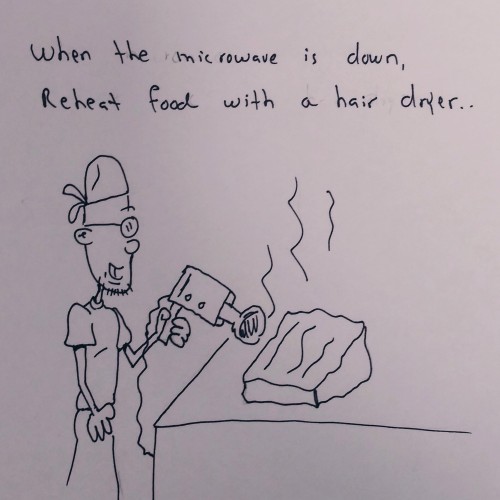 When the microwave is down,
Reheat food with a hair dryer..